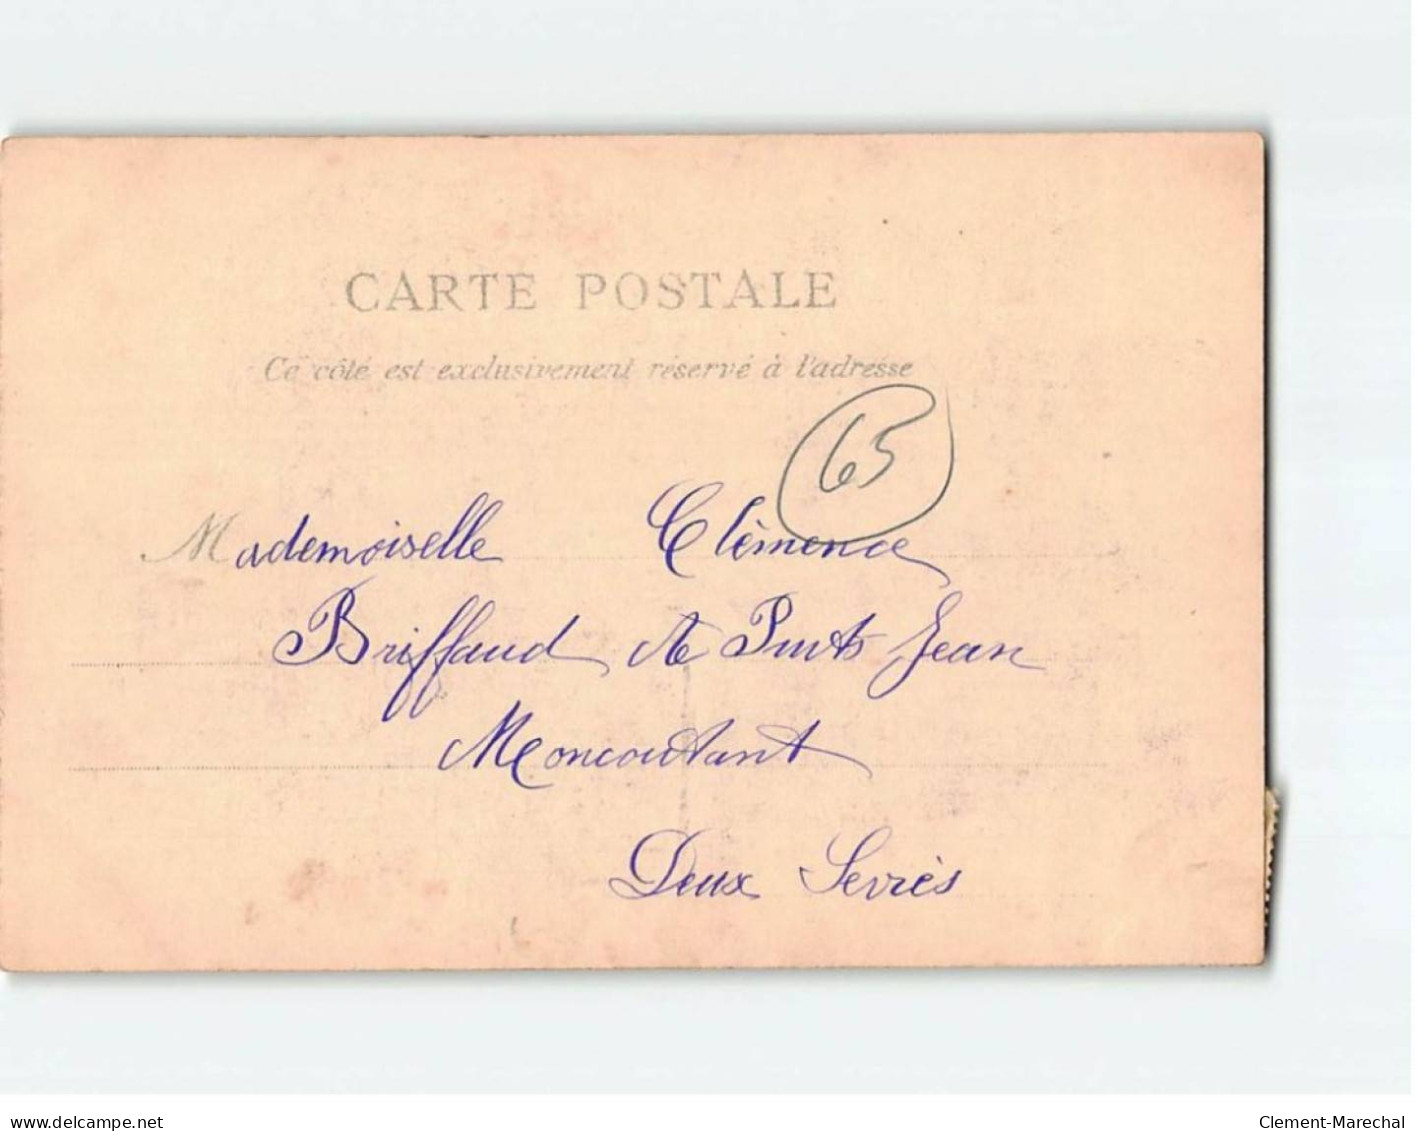 CARTE POSTALE
Ce côté est exclusivement réservé à l'adresse
65
Mademoiselle Clèmence
Briffaud Puits Jean
Moncoutant
Deux Sevrès
www.delcampe.net
Clement-Marechal